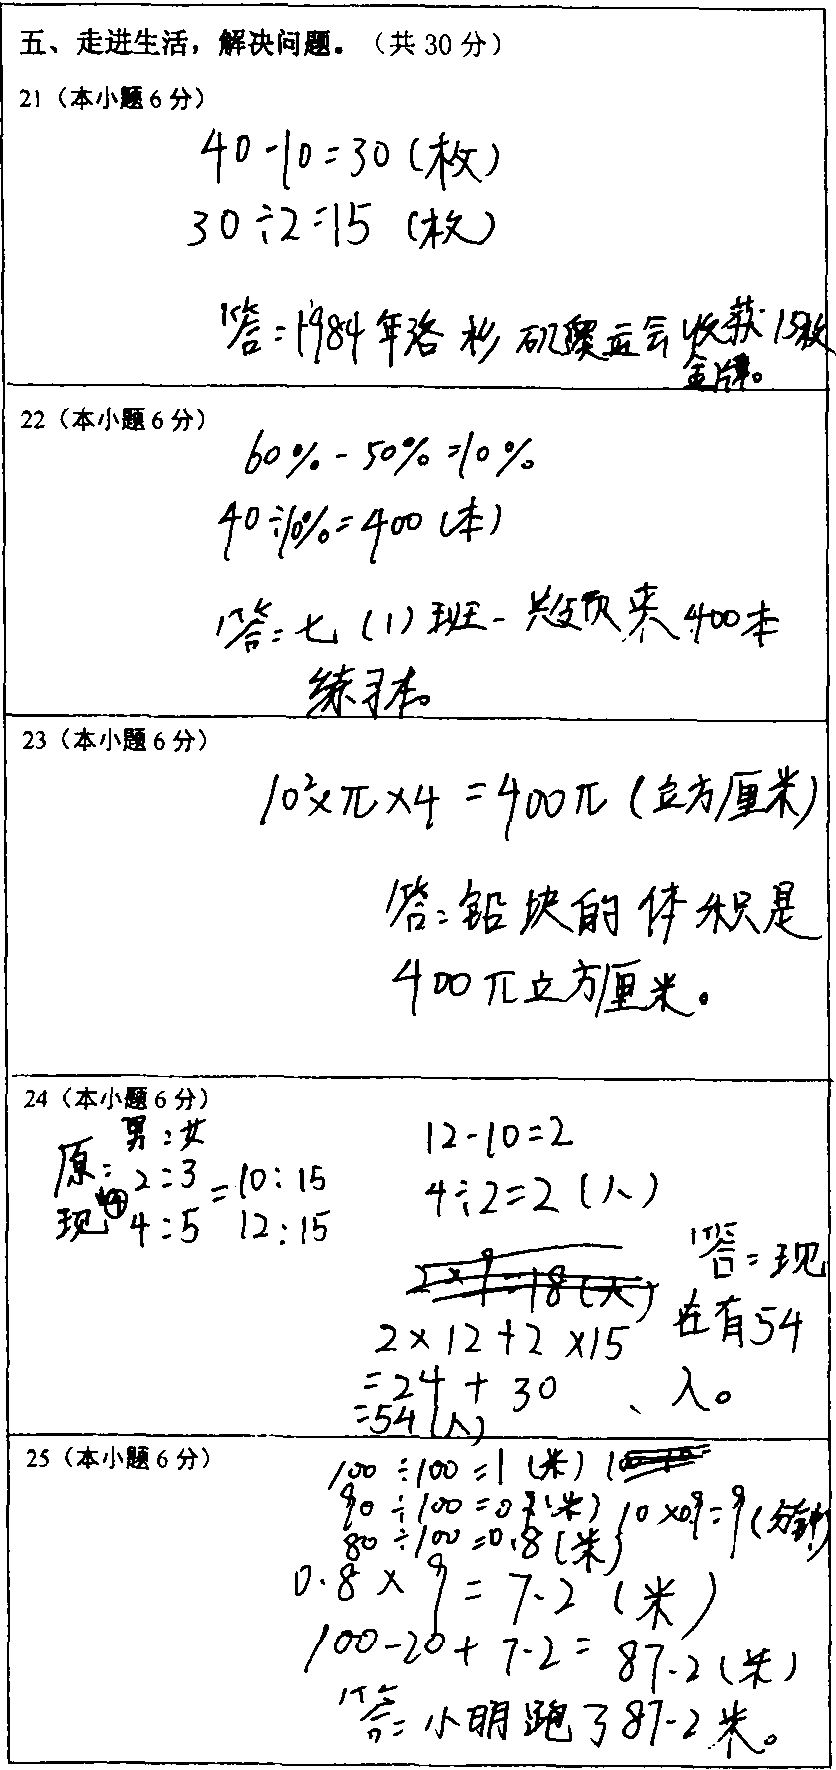 五、走进生活，解决问题。（共 30 分）
21（本小题 6 分）
40-10=30(枚)
30÷2=15 (枚)
答：1984年洛杉矶奥运会收获15枚
金牌。
22（本小题 6 分）
60%-50%=10%
40÷10%=400(本)
答：七(1)班一共领来400本
练习本。
23（本小题 6 分）
10²×π×4=400π(立方厘米)
答：铅块的体积是
400π立方厘米。
24（本小题 6 分）
男：女
原：2:3=10:15
现 4:5 12:15
12-10=2
4÷2=2(人)
2×9=18(人)
2×12+2×15
=24+30
=54(人)
答：现
在有54
人。
25（本小题 6 分）
100÷100=1(米)
90÷100=0.9(米) 10×0.9=9(分钟)
80÷100=0.8(米)
0.8×9=7.2(米)
100-20+7.2=87.2(米)
答：小明跑了87.2米。